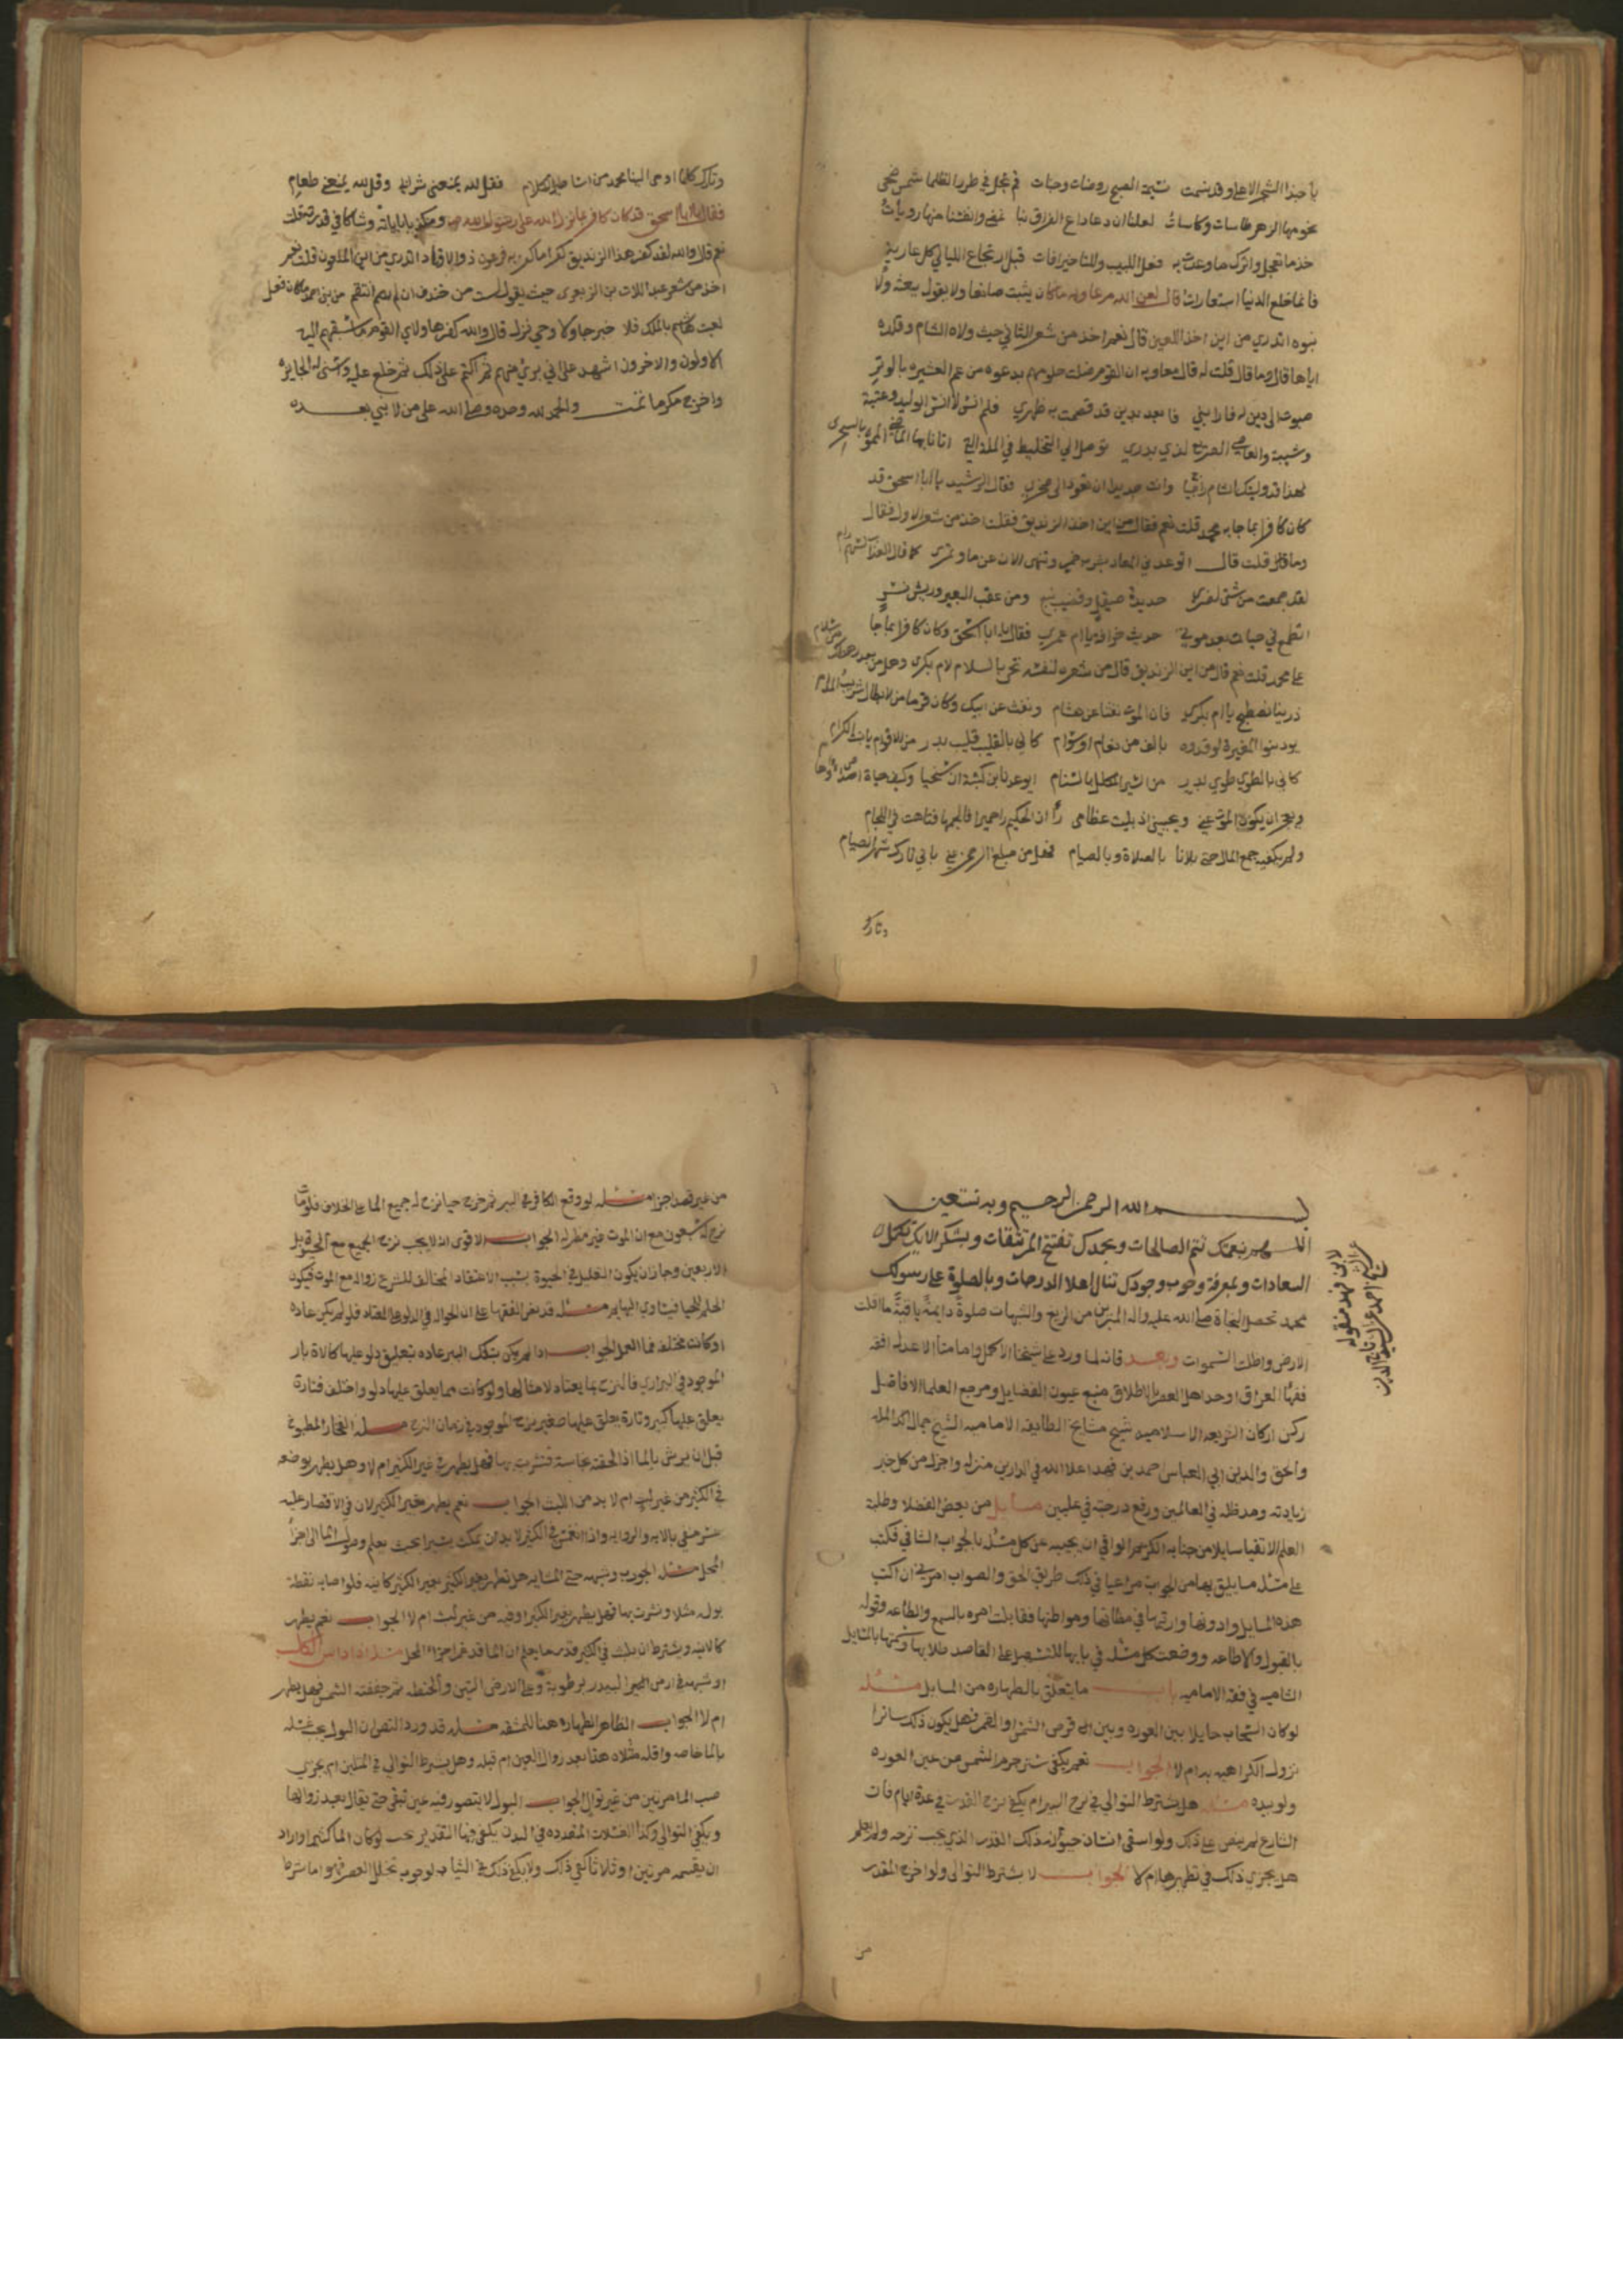 يا حبذا الشجر الاعلى وقد نسمت نسيمة الصبح روضات وجنات قم نجل في طرر الظلما شمس ضحى
نجومها الزهر طاسات وكاسات لعلنا ان دعا داع الفراق بنا نمضي وانفسنا منها رويات
خذ ما تعجل واترك ما وعدت به فعل اللبيب وللتاخير افات قبل ارتجاع الليالي كل عارية
فانما خلع الدنيا استعارات قال لعن الله مرعاويه ما كان يثبت صانعا ولا يقول ببعثة ولا
نبوه اتدري من اين اخذ اللعين قال نعم اخذ من شعر الثاني حيث ولاه الشام وقلده
اياها قال وما قال قلت له قال معاويه ان القوم ضلت حلومهم بدعوه من عم العشيره بالوتر
صبوت الى دين له فارابني فابعد بدين قد قصمت به ظهري فلم انس لا انس الوليد وعتبة
وشيبة والعاص الصريع لدي بدر توصل الي التخليط في الملة التي اتانا بها الماضي المموه بالسحر
لهذا قد وليتك الشام راجيا وانت جدير ان تعود الى صخر فقال الرشيد يا ابا اسحق قد
كان كافرا بما جا به محمد قلت نعم فقال من اين اخذ الزنديق فقلت اخذ من شعر الاول فقال
وما قال قلت قال اتوعدني المعاد بشرب خمر وتنهى الان عن ماء وتمر
لقد جمعت من شتى لضر حديدة صيقل وقضيب نبع ومن عقب البعير وريش نسر
اتطمع في حيات بعد موت حديث خرافة يا ام عمرو فقال يا ابا اسحق وكان كافرا بما جا
على محمد قلت نعم قال من اين الزنديق قال من شعره لنفسه تحي بالسلام ام بكر وهل من بعد رهطك من سلام
ذرينا نصطبح يا ام بكر فان الموت نقب عن هشام ونقب عن ابيك وكان قرما من الابطال شريب المدام
يود بنوا المغيرة لو فدوه بالف من نعام او سوام كاني بالقليب قليب بدر من الاقوام يا بنت الكرام
كاني بالطوي طوي بدر من الشيزا تكلل بالسنام ايوعدنا ابن كبشة ان سنحيا وكيف حياة اصداء وهام
ويعجز ان يكف الموت عني ويحييني اذا بليت عظامي راي ان الحكيم راى حميرا فالجمها فتاهت في اللجام
ولم يكفيه جمع المال حتى بلانا بالصلاة وبالصيام فهل من مبلغ الرحمن عني باني تارك شهر الصيام
وتارك
وتارك كلما اوحى الينا محمد من اساطير الكلام فقل لله يمنعني شرابي وقل لله يمنعني طعامي
فقال يا ابا اسحق قد كان كافر بما نزل الله على رسول الله ص ومكذبا باياته وشاكا في قدرته قلت
نعم قال والله لقد كفر هذا الزنديق كفرا ما كفر به فرعون ذو الاوتاد اتدري من اين الملعون قلت نعم
اخذ من شعر عبد اللات بن الزبعرى حيث يقول لست من خندف ان لم انتقم من بني احمد ما كان فعل
لعبت هاشم بالملك فلا خبر جا ولا وحي نزل قال والله كفر هاولاي القوم ما سبقهم اليه
الاولون والاخرون اشهد على اني بري منهم ثم اكتم على ذلك ثم خلع عليه واسنى له الجايزه
واخرج مكرما تمت والحمد لله وحده وصلى الله على من لا نبي بعده
بسم الله الرحمن الرحيم وبه نستعين
اللهم بنعمتك تتم الصالحات وبحمدك تفتح المرتقات وبشكر الايك تكمل
السعادات ولمعرفة وجوب وجودك تنال اعلا الدرجات وبالصلوة على رسولك
محمد تحصل النجاة صلى الله عليه واله المبرئين من الزيغ والشبهات صلوة دايمة باقية ما اقلت
الارض واظلت السموات وبعد فانه لما ورد على شيخنا الاكمل وامامنا الاعدل افقه
فقها العراق اوحد اهل العصر بالاطلاق منبع عيون الفضايل ومرجع العلما الافاضل
ركن اركان الشريعه الاسلاميه شيخ مشايخ الطايفه الاماميه الشيخ جمال الملة
والحق والدين ابي العباس احمد بن فهد اعلا الله في الدارين منزله واجزله من كل خير
زيادته ومد ظله في العالمين ورفع درجته في عليين مسايل من بعض الفضلا وطلبة
العلم الاتقيا سايلا من جنابه الكريم الواقي ان يجيبه عن كل مسئله بالجواب الشافي فكتب
على مسئله ما يليق بها من الجواب مراعيا في ذلك طريق الحق والصواب امرني ان اكتب
هذه المسايل وادونها وارتبها في مظانها ومواطنها فقابلت امره بالسمع والطاعه وقوله
بالقبول والاطاعه ووضعت كل مسئله في بابها لتسهيل على القاصد طلابها وسميتها بالمسايل
الشاميه في فقه الاماميه باب ما يتعلق بالطهاره من المسايل مسئله
لو كان السحاب حايلا بين العوره وبين قرص الشمس او القمر فهل يكون ذلك ساترا
تزول الكراهيه به ام لا الجواب نعم يكفي ستر جرم الشمس من عين العوره
ولو بيده مسئله هل يشترط التوالي في نزح البير ام يكفي نزح القدر في عدة ايام فان
الشارع لم ينص على ذلك ولو استقى انسان حيوان ذلك القدر الذي يجب نزحه ولم يعلم
هل يجزي ذلك في تطهيرها ام لا الجواب لا يشترط التوالى ولو اخرج المقدر
من
من غير قصد اجزا مسئله لو وقع الكافر في البير ثم خرج حيا نزح له جميع الما على الخلاف فلو مات
نزح له سبعون مع ان الموت غير مطهر له الجواب الاقوى انه لا يجب نزح الجميع مع الحيوة بل
الاربعين وجاز ان يكون التغليظ في الحيوة بسبب الاعتقاد المخالف للشرع زواله مع الموت فيكون
الحكم للحيا فيساوي البهايم مسئله قد نص الفقها على ان الحوالة في الدلو على المعتاد فلو لم يكن عاده
او كانت مختلفه فما العمل الجواب اذا لم يكن بتلك البير عاده بتعليق دلو عليها كالابار
الموجوده في البراري فالنزح بما يعتاد لامثالها ولو كانت مما يعلق عليها دلو واختلف فتارة
يعلق عليها كبير وتارة يعلق عليها صغير نزح الموجود في زمان النزح مسئله الفخار المطبوخ
قبل ان يرش بالما اذا لحقته نجاسة فتشربت بها فهل يطهر في غير الكثير ام لا وهل يطهر بوضعه
في الكثير من غير لبث ام لا بد من اللبث الجواب نعم يطهر بغير الكثير لان في الاقتصار عليه
عسر منفي بالايه والروايه واذا انغمس في الكثير لا بد ان يمكث يسيرا بحيث يعلم وصول الما الى اجزا
المحل مسئله الجورب وشبهه هل تطهر بغير الكثير كالانيه فلو اصابه نقطة
بول مثلا وتشرب بها فهل يطهر بغير الكثير او فيه من غير لبث ام لا الجواب نعم يطهر
كالانيه ويشترط ان يلبث في الكثير قدر ما يعلم ان الما قد غمر اجزاء المحل مسئله اذا داس الكلب
او شبهه في ارض البيدر برطوبة وعلى الارض التبن والحنطه ثم جففته الشمس فهل يطهر
ام لا الجواب الظاهر الطهاره هنا للمشقه مسئله قد ورد النص ان البول يجب غسله
بالما خاصه واقله مثلاه هذا بعد زوال العين ام قبله وهل يشترط التوالي في المثلين ام يجزي
صب الما مرتين من غير توال الجواب البول لا يتصور فيه عين تبقى حتى يقال بعد زوالها
ويكفي التوالي وكذا الغسلات المتعدده في البدن يكفي فيها التقدير بحيث لو كان الما كثيرا واراد
ان يقسمه مرتين او ثلاثا كفى ذلك ولا يكفي ذلك في الثياب لوجوب تخلل العصر فهو اما شرط